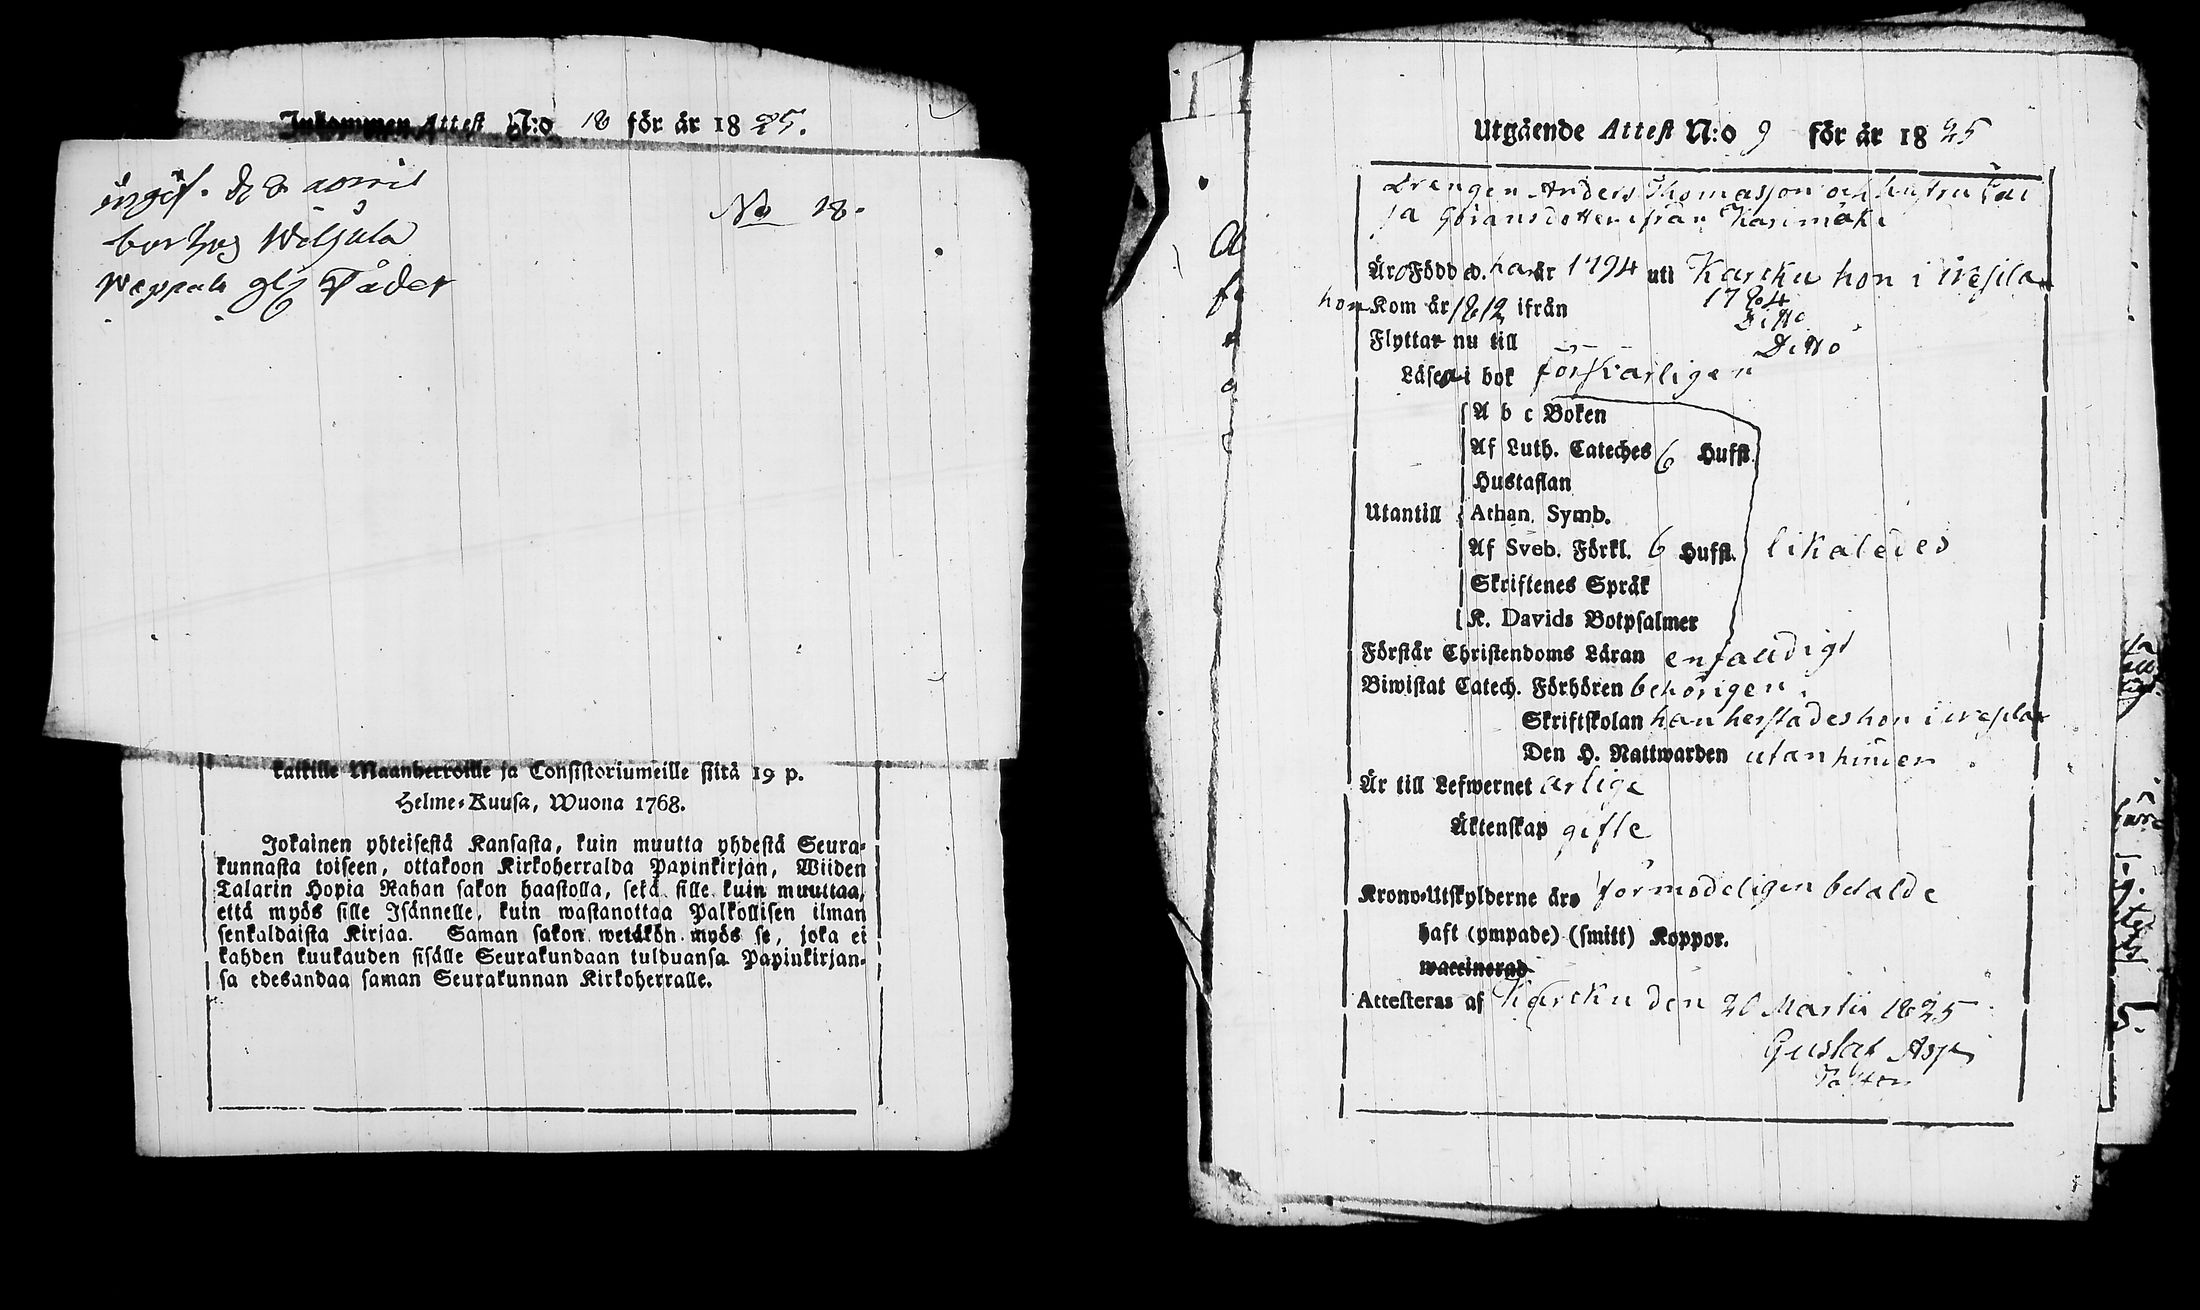 Inkommen Attest N:o 18 för år 1825.
ingif. d 8 april
No 18.
kaikille Maanherroille ja Consistoriumeille siitä 19 p.
Helme-Kuusa, Wuona 1768.
Jokainen yhteisestä Kansasta, kuin muutta yhdestä Seura-
kunnasta toiseen, ottakoon Kirkoherralda Papinkirjan, Wiiden
Talarin Hopia Rahan sakon haastolla, sekä sille kuin muuttaa,
että myös sille Isännelle, kuin wastanottaa Palkollisen ilman
senkaldaista Kirjaa. Saman sakon wetäkön myös se, joka ei
kahden kuukauden sisälle Seurakundaan tulduansa Papinkirjan-
sa edesandaa saman Seurakunnan Kirkoherralle.
Utgående Attest N:o 9 för år 1825
Drengen Anders Thomasson och hustru Cai
sa Göransdotter ifrån Karimäki
Äro Född ed. han år 1794 uti Karcku hon i wesila
1794
hon Kom år 1812 ifrån Ditto
Flyttar nu till Ditto
Läsea i bok försvarligen
A b c Boken
Af Luth. Cateches 6 Hufst.
Hustaflan
Utantill Athan. Symb.
Af Sveb. Förkl. 6 Hufst. likaledes
Skriftenes Språk
K. Davids Botpsalmer
Förstår Christendoms Läran enfaldigt
Biwistat Catech. Förhören behörigen.
Skriftskolan han herstades hon i wesila
Den H. Nattwarden utan hinder
Är till Lefwernet ärlige
Äktenskap gifte
Krono-Utskylderne äro förmodeligen betalde
haft (ympade) (smitt) Koppor.
waccinerad
Attesteras af Karcku den 20 Martii 1825
Gustaf Asp